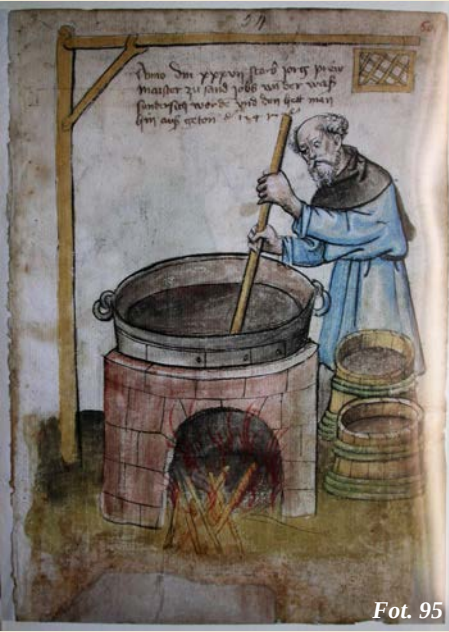 Anno dm xxxvii starb jorg prew
maister zu sand jobs der waß
sundersiech worde vnd den hett man
hin auß geton
Fot. 95